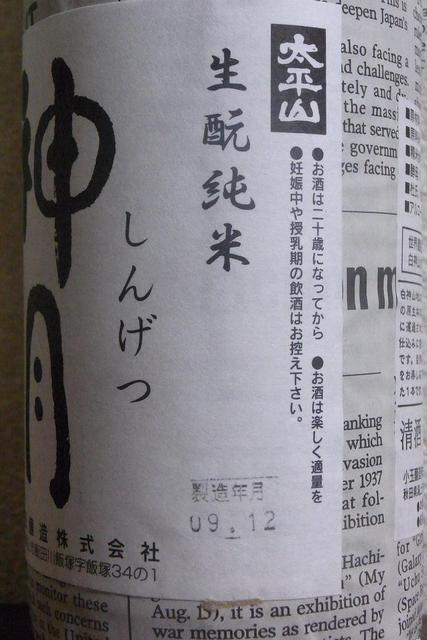 太平山
生酛純米
神月
しんげつ
●お酒は二十歳になってから ●お酒は楽しく適量を
●妊娠中や授乳期の飲酒はお控え下さい。
製造年月
09.12
醸造株式会社
飯田川飯塚字飯塚34の1
eepen Japan's
also facing a
d challenges.
tely and d
the massi
that served
governm
ges facing
on m
anking
which
vasion
er 1937
at fol-
ibition
Hachi-
" (My
Aug. 15), it is an exhibition of
war memories as rendered by
monitor these
such concerns
清酒
小玉醸
秋田県
for "G
(Game
"Uchu
(Space